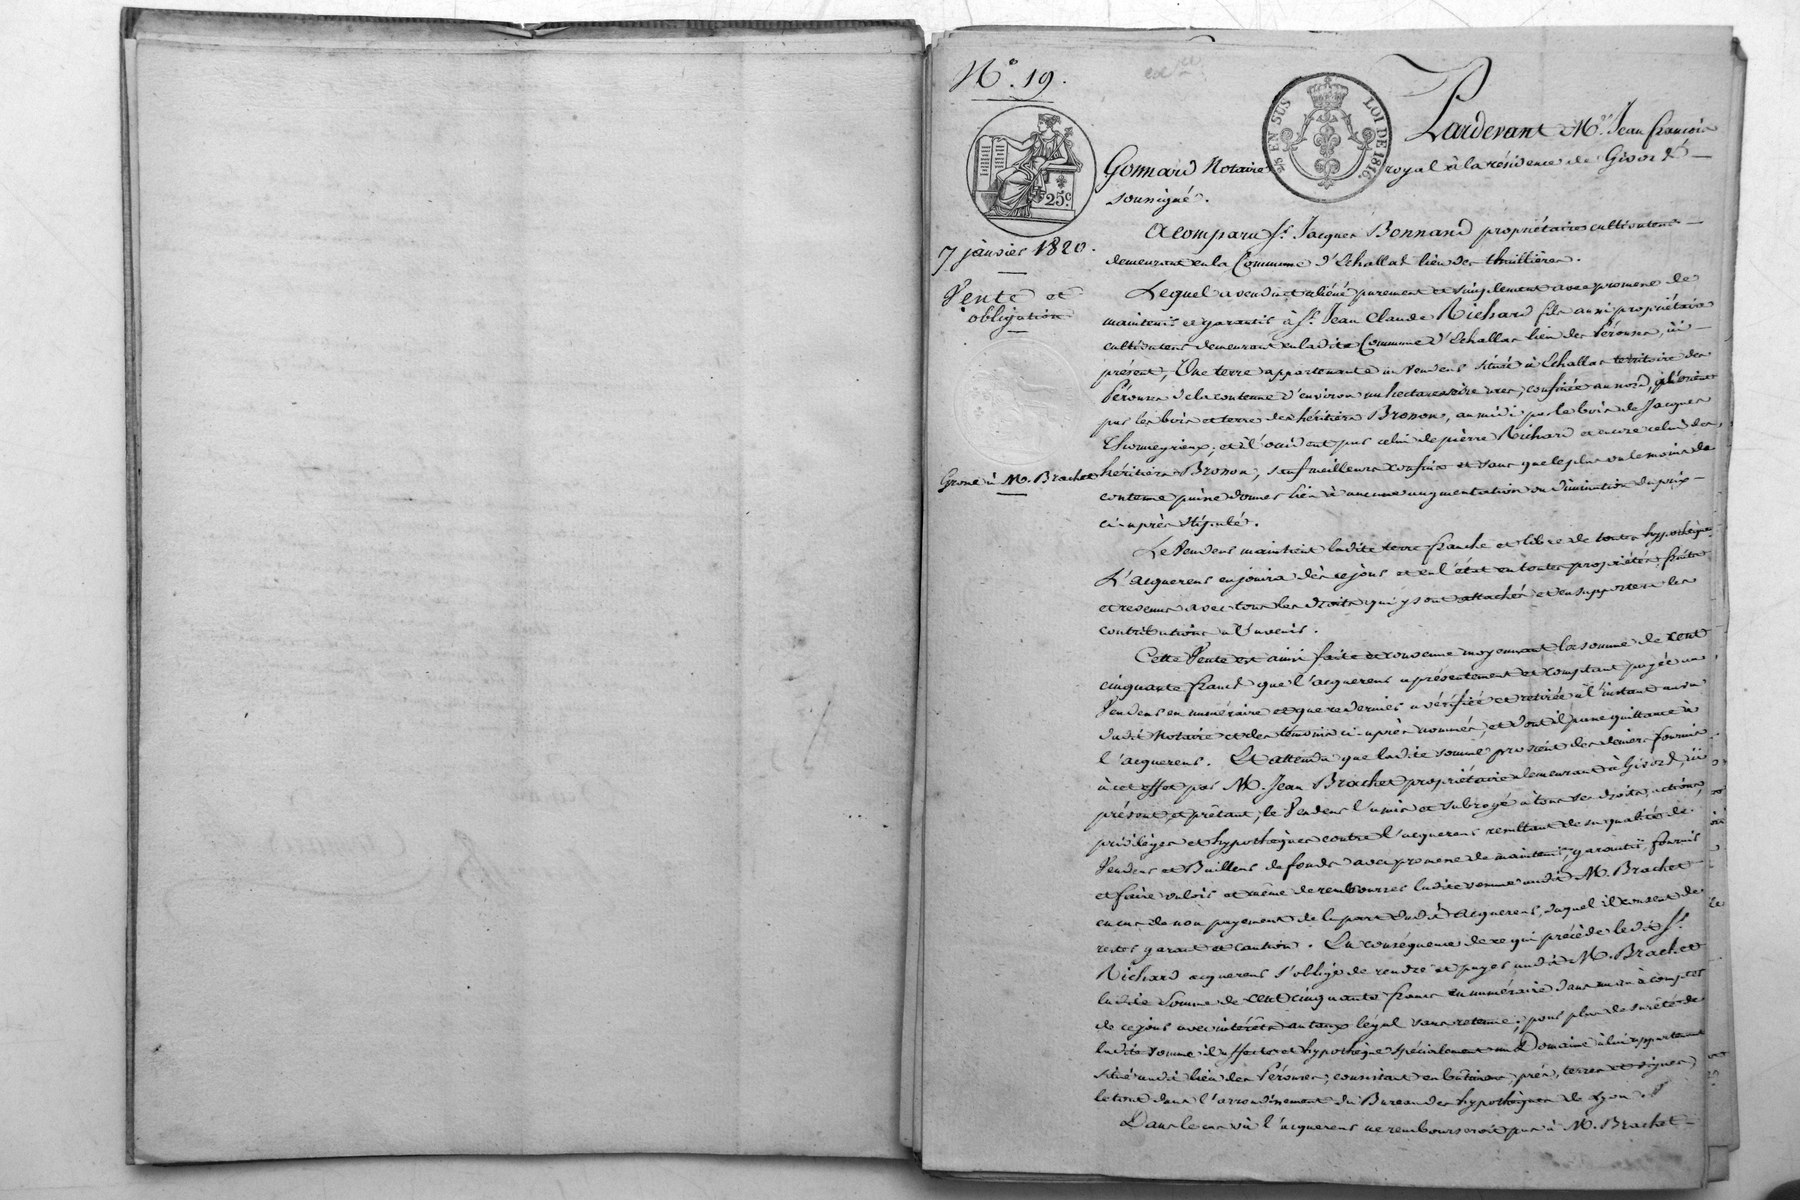 N° 19.
¼ EN SUS LOI DE 1816.
25c
Pardevant Me. Jean françois
Gonnard Notaire royal à la résidence de Givors
soussigné.
7 janvier 1820.
Vente et
obligation
Grosse à M. Brachet
A comparu Sr. Jacques Bonnand propriétaire cultivateur
demeurant en la Commune d'Echallas lieu des thuillières.
Lequel a vendu et aliéné purement et simplement avec promesse de
maintenir et garantir à Sr. Jean Claude Richard fils aussi propriétaire
cultivateur demeurant en la dite Commune d'Echallas lieu des Pérouses, ici
présent, Une terre appartenante au Vendeur située à Echallas territoire des
Pérouses de la contenue d'environ un hectare ares; confinée au nord, à l'orient
par les bois et terre des héritiers Bronon, au midi par le bois de Jacques
Thomeyrieux; et à l'occident par celui de pierre Richard et encore celui des
héritiers Bronon, sauf meilleurs confins et sans que le plus ou le moins de
contenue puisse donner lieu à aucune augmentation ou diminution du prix
ci-après stipulé.
Le Vendeur maintient ladite terre franche et libre de toutes hypothèques
L'acquereur en jouira dès ce jour et en l'état en toutes propriétés fruits
et revenus avec tous les droits qui y sont attachés et en supportera les
contributions à l'avenir.
Cette Vente est ainsi faite et convenue moyennant la somme de cent
cinquante francs que l'acquereur a présentement et comptant payée au
Vendeur en numéraire et que ce dernier a vérifiée et retirée à l'instant au vu
dudit Notaire et des témoins ci-après nommés; et dont il passe quittance à
l'acquereur. Et attendu que ladite somme provient des deniers fournis
à cet effet par M. Jean Brachet propriétaire demeurant à Givors, ici
présent, et prêtant; le Vendeur l'a mis et subrogé à tous ses droits, actions,
privilèges et hypothèques contre l'acquereur resultant de sa qualité de
Vendeur et Bailleur de fonds avec promesse de maintenir, garantir, fournir
et faire valoir et même de rembourser ladite somme audit M. Brachet
en cas de non payement de la part dudit Acquereur, duquel il consent de
rester garant et caution. En conséquence de ce qui précède ledit Sr.
Richard acquereur s'oblige de rendre et payer audit M. Brachet
ladite Somme de cent cinquante francs en numéraire dans un an à compter
de ce jour avec intérêts au taux légal sans retenue; pour plus de sureté de
ladite somme il affecte et hypothèque spécialement un Domaine à lui appartenant
situé audit lieu des Pérouses, consistant en bâtimens, prés, terres et vignes,
le tout dans l'arrondissement du Bureau des hypothèques de Lyon.
Dans le cas où l'acquereur ne rembourseroit pas à M. Brachet